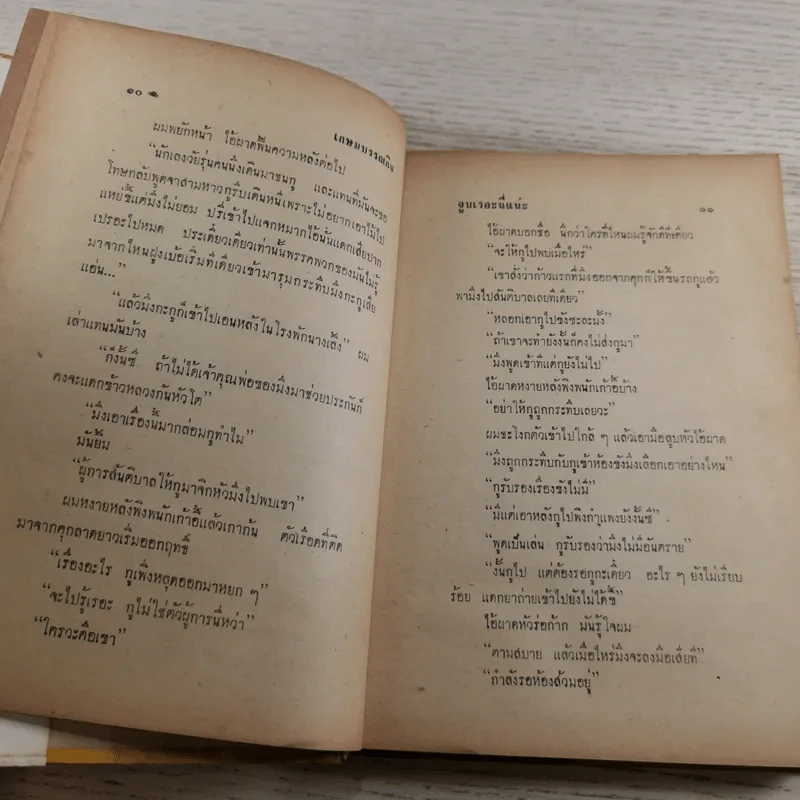 ๑๐
เกษมบรรณกิจ
ผมพยักหน้า ไอ้ผาดฟื้นความหลังต่อไป
“นักเลงวัยรุ่นคนนึ่งเดินมาชนกู และแทนที่มันจะขอ
โทษกลับพูดจาสามหาวกูรีบเดินหนีเพราะไม่อยากเอาไม้ไป
แหย่ขี้แต่มึงไม่ยอม ปรี่เข้าไปแจกหมากไอ้นั่นแตกเสียปาก
เปรอะไปหมด ประเดี๋ยวเดียวเท่านั้นพรรคพวกของมันไม่รู้
มาจากไหนฝูงเบ้อเริ่มทีเดียวเข้ามารุมกระทืบมึงกะกูเสีย
แอ่น...”
“แล้วมึงกะกูก็เข้าไปเอนหลังในโรงพักนางเลิ้ง” ผม
เล่าแทนมันบ้าง
“ก็งั้นซี ถ้าไม่ได้เจ้าคุณพ่อของมึงมาช่วยประกันก็
คงจะแดกข้าวหลวงกันหัวโต”
“มึงเอาเรื่องนี้มากล่อมกูทำไม”
มันยิ้ม
“ผู้การสันติบาลให้กูมาจิกหัวมึงไปพบเขา”
ผมหงายหลังพิงพนักเก้าอี้แล้วเกาก้น ตัวเรือดที่ติด
มาจากคุกลาดยาวเริ่มออกฤทธิ์
“เรื่องอะไร กูเพิ่งหลุดออกมาหยก ๆ”
“จะไปรู้เรอะ กูไม่ใช่ตัวผู้การนี่หว่า”
“ใครวะคือเขา”
จูบเรอะนี่แน่ะ
๑๑
ไอ้ผาดบอกชื่อ นึกว่าใครที่ไหนผมรู้จักดีทีเดียว
“จะให้กูไปพบเมื่อไหร่”
“เขาสั่งว่าก้าวแรกที่มึงออกจากคุกก็ให้ขึ้นรถกูแล้ว
พามึงไปสันติบาลเลยทีเดียว”
“หลอกเอากูไปขังซะละมั้ง”
“ถ้าเขาจะทำยังงั้นก็คงไม่ส่งกูมา”
“มึงพูดเข้าทีแต่กูยังไม่ไป”
ไอ้ผาดหงายหลังพิงพนักเก้าอี้บ้าง
“อย่าให้กูถูกกระทืบเลยวะ”
ผมชะโงกตัวเข้าไปใกล้ ๆ แล้วเอามือลูบหัวไอ้ผาด
“มึงถูกกระทืบกับกูเข้าห้องขังมึงเลือกเอาอย่างไหน”
“กูรับรองเรื่องขังไม่มี”
“มีแต่เอาหลังกูไปพิงกำแพงยังงั้นซี”
“พูดเป็นเล่น กูรับรองว่ามึงไม่มีอันตราย”
“งั้นกูไป แต่ต้องรอกูกะเดี๋ยว อะไร ๆ ยังไม่เรียบ
ร้อย แดกยาถ่ายเข้าไปยังไม่ได้ขี้”
ไอ้ผาดหัวร่อก้าก มันรู้ใจผม
“ตามสบาย แล้วเมื่อไหร่มึงจะลงมือเสียที”
“กำลังรอห้องส้วมอยู่”